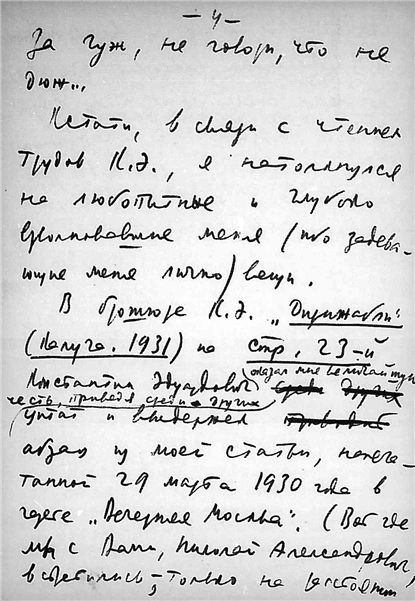 – 4 –
За гуж, не говори, что не
дюж...
Кстати, в связи с чтением
трудов К.Э., я натолкнулся
на любопытные и глубоко
взволновавшие меня (ибо задева-
ющие меня лично) вещи.
В брошюре К.Э. „Дирижабли"
(Калуга. 1931) на стр. 23-й
Константин Эдуардович оказал мне величайшую
честь, приведя среди других
цитат и выдержек
абзац из моей статьи, напеча-
танной 29 марта 1930 года в
газете „Вечерняя Москва". (Вот где
мы с Вами, Николай Александрович,
встретились, – только на расстоянии